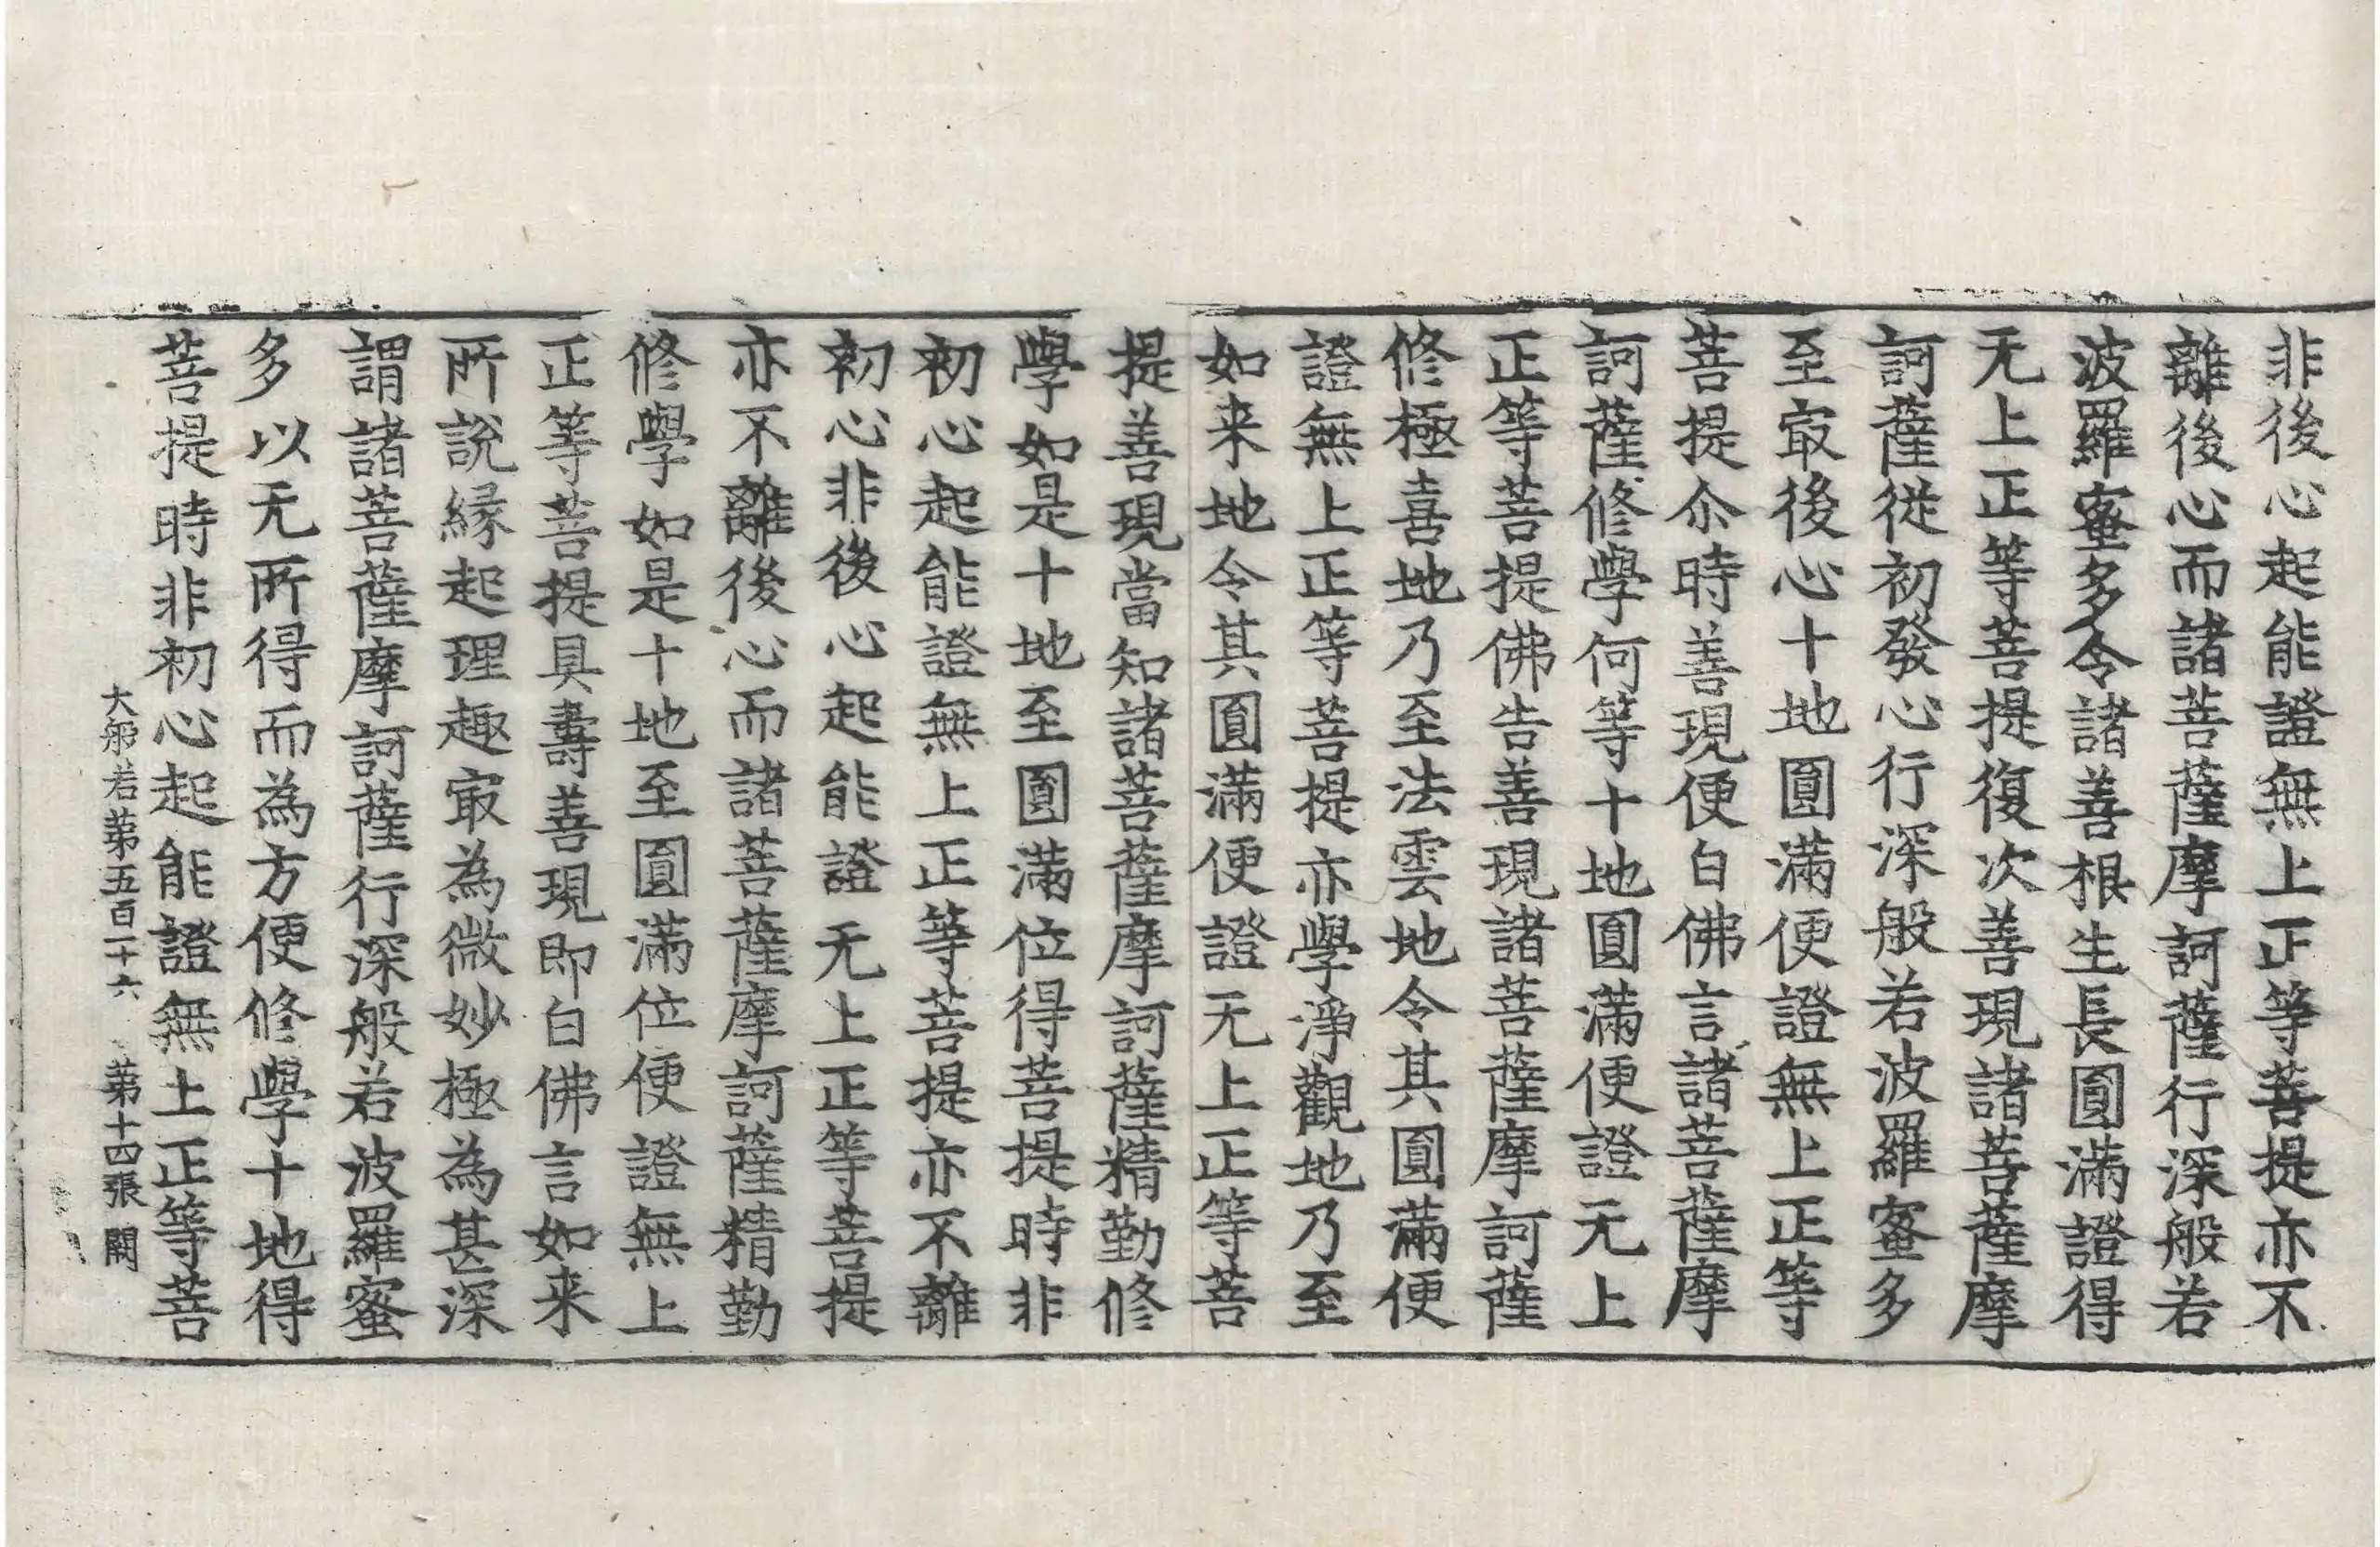 非後心起能證無上正等菩提亦不
離後心而諸菩薩摩訶薩行深般若
波羅蜜多令諸善根生長圓滿證得
无上正等菩提復次善現諸菩薩摩
訶薩從初發心行深般若波羅蜜多
至㝡後心十地圓滿便證無上正等
菩提尒時善現便白佛言諸菩薩摩
訶薩修學何等十地圓滿便證无上
正等菩提佛告善現諸菩薩摩訶薩
修極喜地乃至法雲地令其圓滿便
證無上正等菩提亦學淨觀地乃至
如来地令其圓滿便證无上正等菩
提善現當知諸菩薩摩訶薩精勤修
學如是十地至圓滿位得菩提時非
初心起能證無上正等菩提亦不離
初心非後心起能證无上正等菩提
亦不離後心而諸菩薩摩訶薩精勤
修學如是十地至圓滿位便證無上
正等菩提具壽善現即白佛言如来
所說緣起理趣㝡為微妙極為甚深
謂諸菩薩摩訶薩行深般若波羅蜜
多以无所得而為方便修學十地得
菩提時非初心起能證無上正等菩
大般若第五百二十六 第十四張 闕